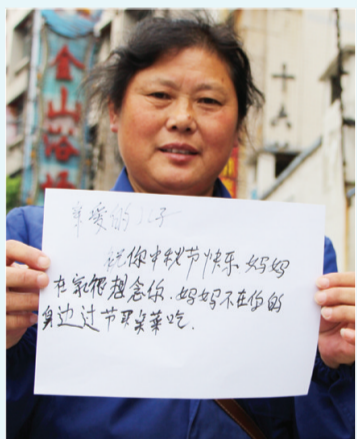 金山浴
亲爱的儿子
祝你中秋节快乐 妈妈
在家很想念你.妈妈不在你的
身边过节买菜吃.